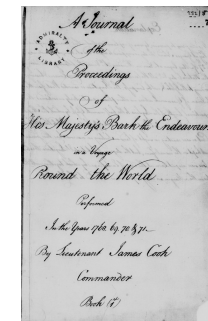 A Journal
ADMIRALTY
LIBRARY
of the
Proceedings
of
His Majesty's Bark the Endeavour
in a Voyage
Round the World
Performed
In the Years 1768, 69, 70 & 71
By Lieutenant James Cook
Commander
Book